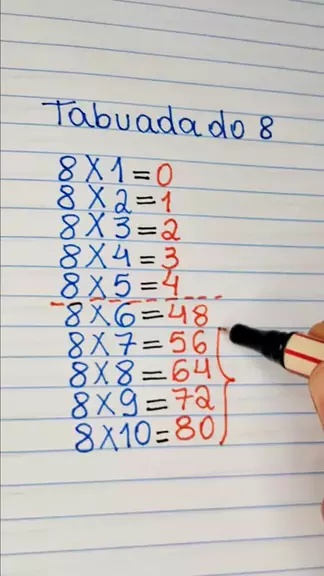 Tabuada do 8
8 X 1 = 0
8 X 2 = 1
8 X 3 = 2
8 X 4 = 3
8 X 5 = 4
8 X 6 = 48
8 X 7 = 56
8 X 8 = 64
8 X 9 = 72
8 X 10 = 80